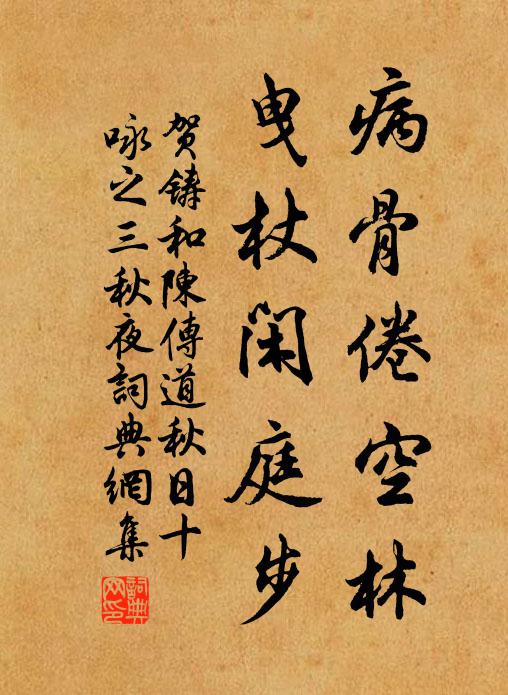 病骨倦空林
曳杖闲庭步
贺铸和陳傳道秋日十
咏之三秋夜詞典網集
詞典网印